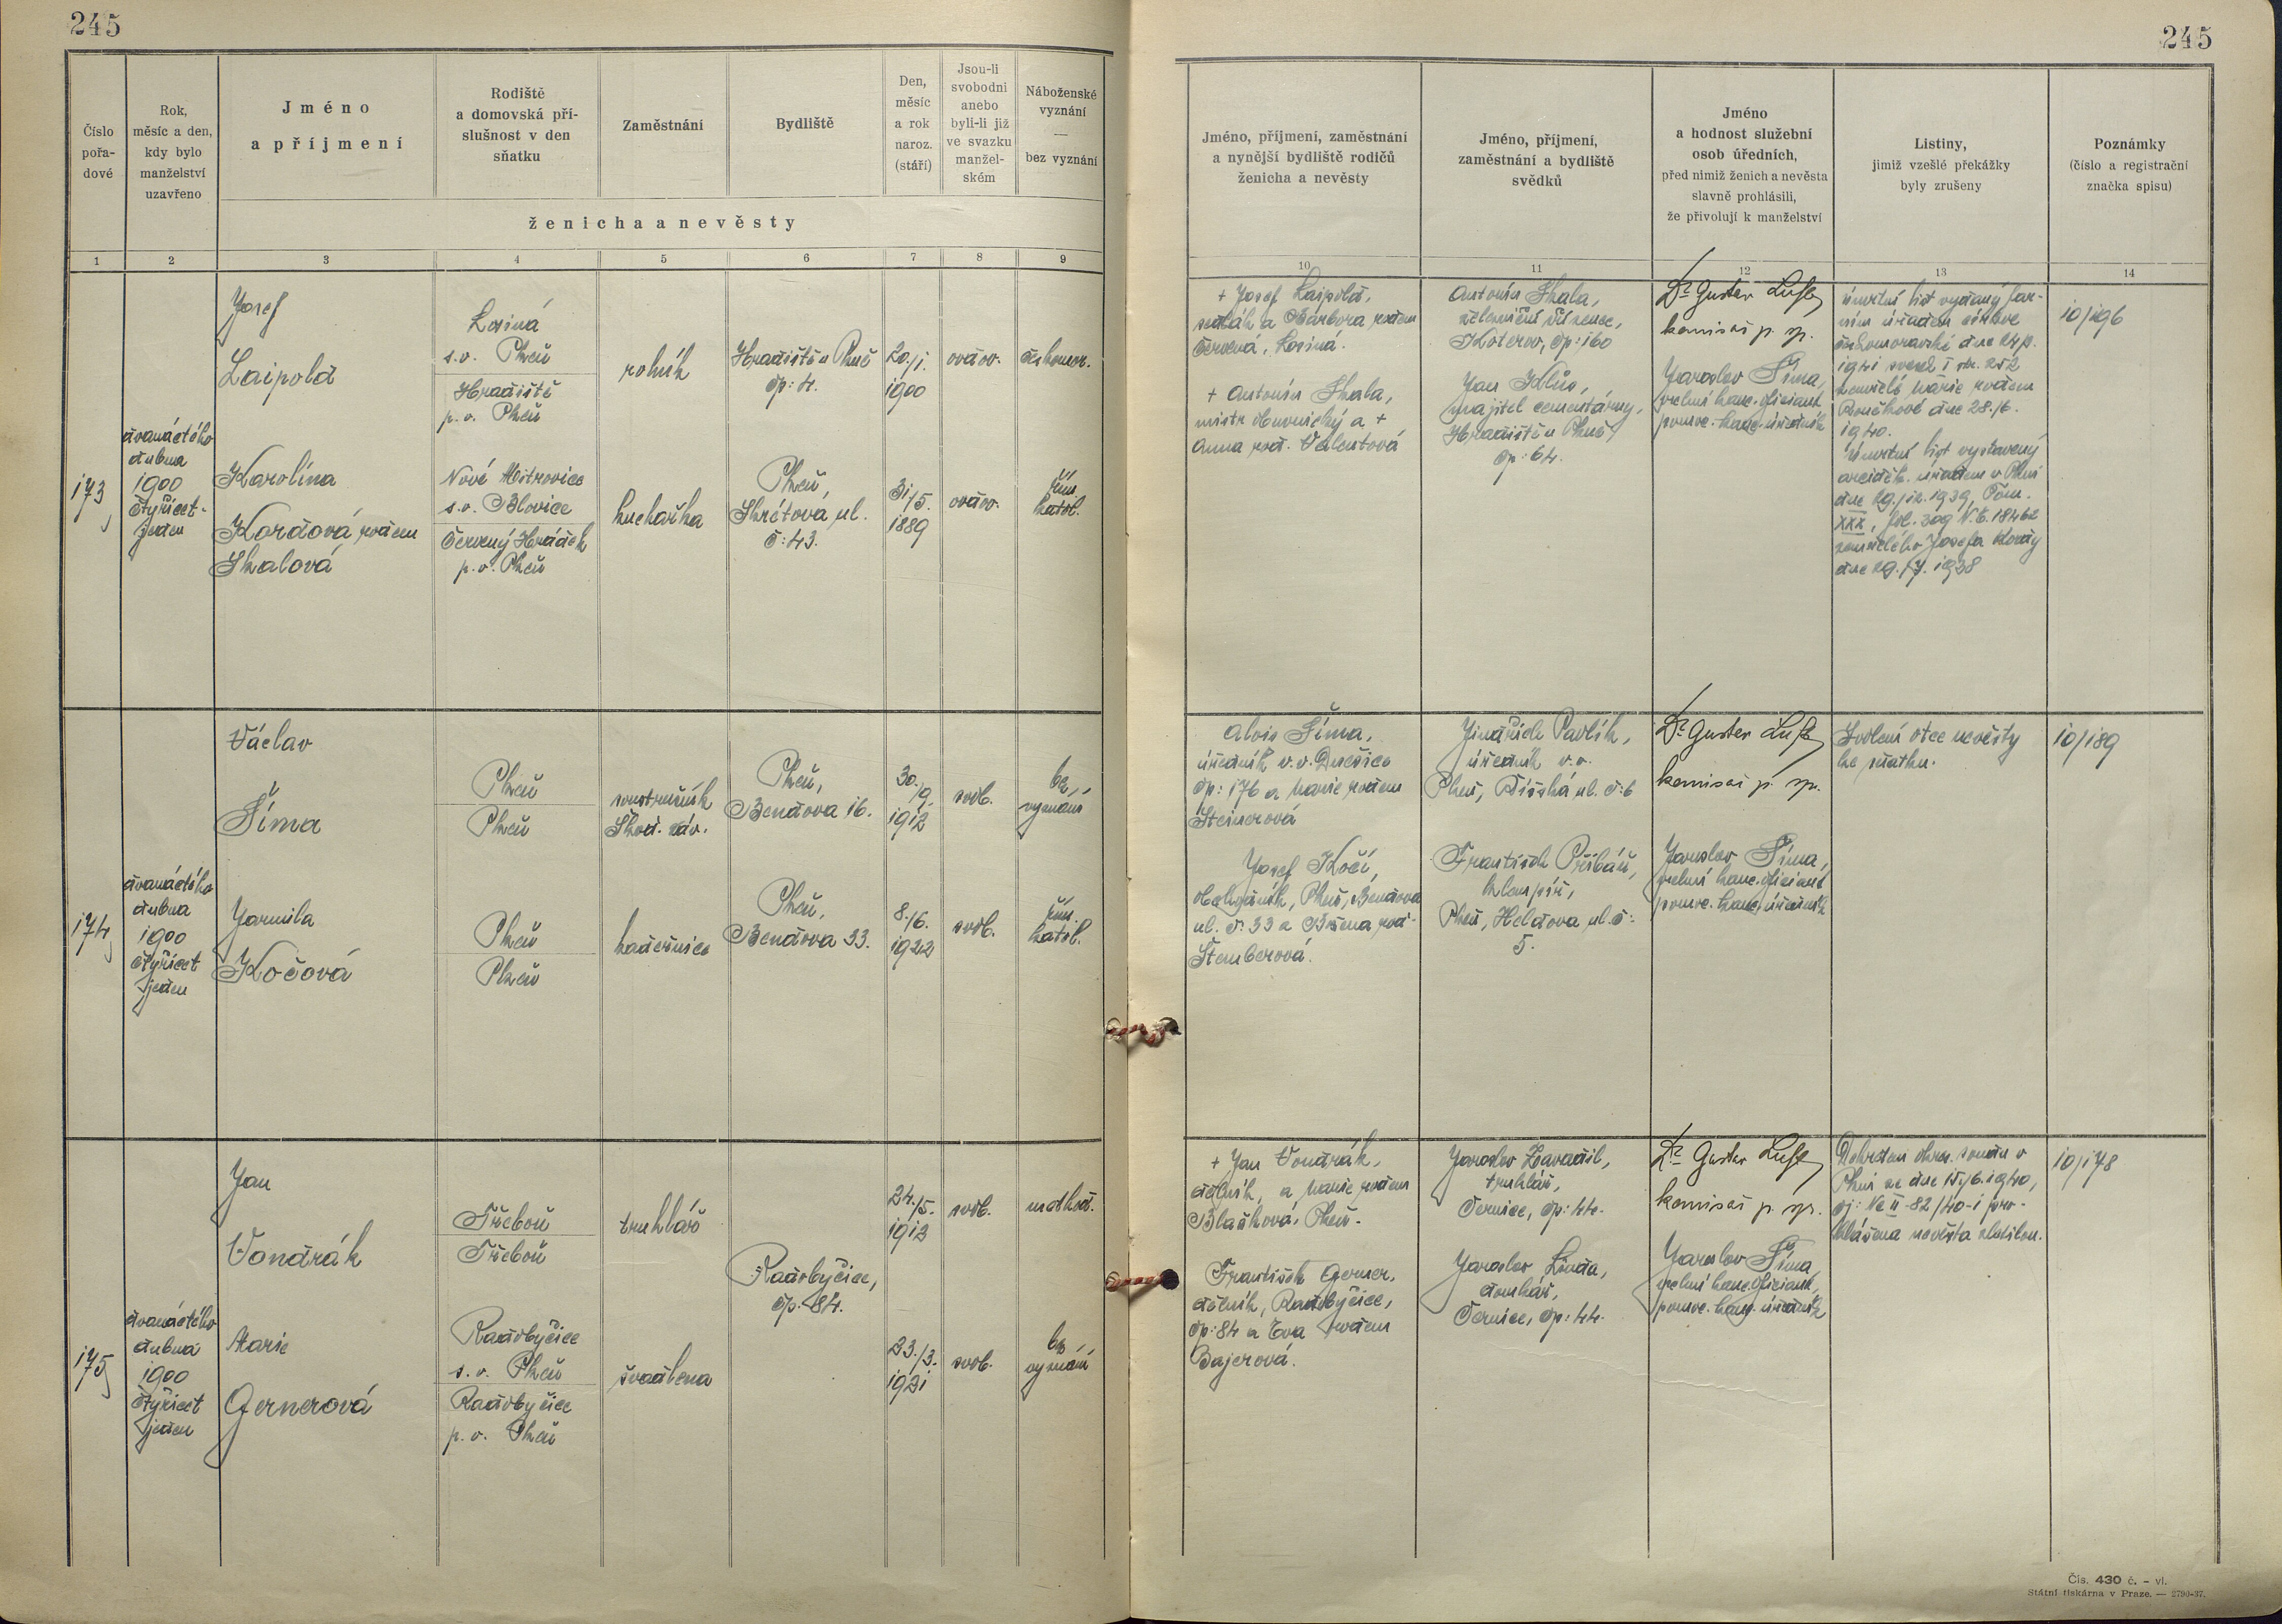 245
245
Číslo
pořa-
dové
Rok,
měsíc a den,
kdy bylo
manželství
uzavřeno
Jméno
a příjmení
Rodiště
a domovská pří-
slušnost v den
sňatku
Zaměstnání
Bydliště
Den,
měsíc
a rok
naroz.
(stáří)
Jsou-li
svobodni
anebo
byli-li již
ve svazku
manžel-
ském
Náboženské
vyznání
—
bez vyznání
ženicha a nevěsty
Jméno, příjmení, zaměstnání
a nynější bydliště rodičů
ženicha a nevěsty
Jméno, příjmení,
zaměstnání a bydliště
svědků
Jméno
a hodnost služební
osob úředních,
před nimiž ženich a nevěsta
slavně prohlásili,
že přivolují k manželství
Listiny,
jimiž vzešlé překážky
byly zrušeny
Poznámky
(číslo a registrační
značka spisu)
1 2 3 4 5 6 7 8 9
10 11 12 13 14
173
dvanáctého
dubna
1900
čtyřicet-
jeden
Josef
Laipold
Losiná
s.o. Plzeň
Hradiště
p.o. Plzeň
rolník
Hradiště u Plzně
čp: 4.
20./1.
1900
ovdov.
českomor.
Karolína
Kordová, rodem
Skalová
Nové Mitrovice
s.o. Blovice
Červený Hrádek
p.o. Plzeň
kuchařka
Plzeň,
Skrétova ul.
č: 43.
31/5.
1889
ovdov.
řím.
katol.
+ Josef Laipold,
sedlák a Barbora rodem
Červená, Losiná.
+ Antonín Skala,
mistr kovnický a +
Anna rod. Valentová
Antonín Skala,
železniční zřízenec,
Koterov, čp: 160
Jan Klůs,
majitel cementárny,
Hradiště u Plzně
čp: 64.
Dr Gustav
komisař p. sp.
Jaroslav Šíma,
vrchní kanc. oficiant
pomoc. kanc. úředník
úmrtní list vydaný far-
ním úřadem církve
českomoravské dne
1941 svazek I str. 252
zemřelé Marie rodem
dne 28./6.
1940.
Úmrtní list vystavený
arciděk. úřadem v Plzni
dne 29./12. 1939, Tom.
XXX, fol. 309 N.E. 18462
zemřelého Josefa Kordy
dne 29./7. 1938
10/196
174
dvanáctého
dubna
1900
čtyřicet
jeden
Václav
Šíma
Plzeň
Plzeň
soustružník
Škod. záv.
Plzeň,
Bendova 16.
30./9.
1912
svob.
bez
vyznání
Jarmila
Kočová
Plzeň
Plzeň
kadeřnice
Plzeň,
Bendova 33.
8./6.
1922
svob.
řím.
katol.
Alois Šíma,
úředník v.v. Dnešice
čp: 176 a Marie rodem
Steinerová
Josef Kočí,
Plzeň, Bendova
ul. č. 33 a Božena rod.
Štemberová.
Jindřich Pavlík,
úředník v.v.
Plzeň, Říšská ul. č: 6
František Přibáň,
klempíř,
Plzeň, Heldova ul. č:
5.
Dr Gustav
komisař p. sp.
Jaroslav Šíma,
vrchní kanc. oficiant
pomoc. kanc. úředník
Svolení otce nevěsty
ke sňatku.
10/189
175
dvanáctého
dubna
1900
čtyřicet
jeden
Jan
Vondrák
Třeboň
Třeboň
truhlář
Radobyčice,
čp. 84.
24./5.
1912
svob.
Marie
Gernerová
Radobyčice
s.o. Plzeň
Radobyčice
p.o. Plzeň
švadlena
23./3.
1921
svob.
bez
vyznání
+ Jan Vondrák,
dělník, a Marie rodem
Blažková, Plzeň.
František Gerner,
dělník, Radobyčice,
čp: 84 a Eva rodem
Bajerová.
Jaroslav Zavadil,
truhlář,
Černice, čp: 44.
Jaroslav Linda,
domkář,
Černice, čp: 44.
Dr Gustav
komisař p. sp.
Jaroslav Šíma,
vrchní kanc. oficiant,
pomoc. kanc. úředník
okres. soudu v
Plzni ze dne 15./6. 1940,
čj: Nc II-82/40-1 pro-
hlášena nevěsta zletilou.
10/178
Čís. 430 č. – vl.
Státní tiskárna v Praze. — 2793-37.